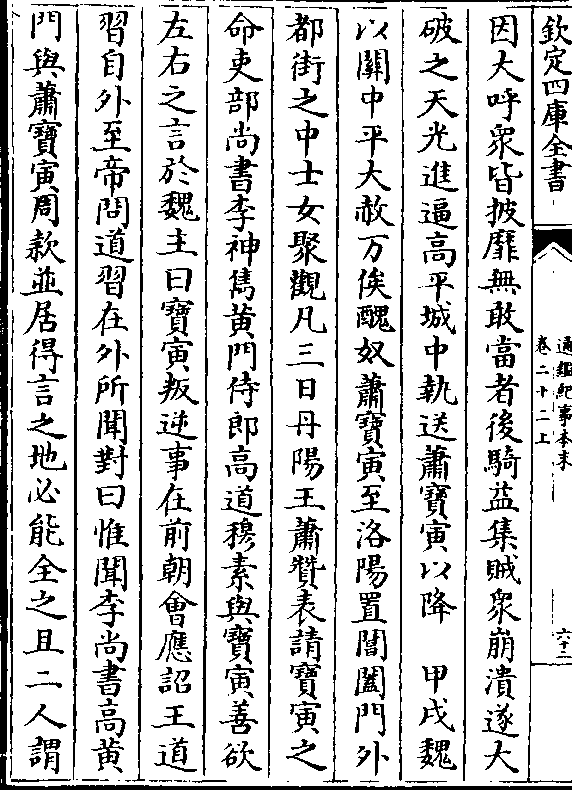 欽定四庫全書
通鑑紀事本末
卷二十二上
六十二
因大呼衆皆披靡無敢當者後騎益集賊衆崩潰遂大
破之天光進逼高平城中執送蕭寶寅以降　甲戌魏
以關中平大赦万俟醜奴蕭寶寅至洛陽置閶闔門外
都街之中士女聚觀凡三日丹陽王蕭贊表請寶寅之
命吏部尚書李神雋黃門侍郎高道穆素與寶寅善欲
左右之言於魏主曰寶寅叛逆事在前朝會應詔王道
習自外至帝問道習在外所聞對曰惟聞李尚書高黃
門與蕭寶寅周款並居得言之地必能全之且二人謂